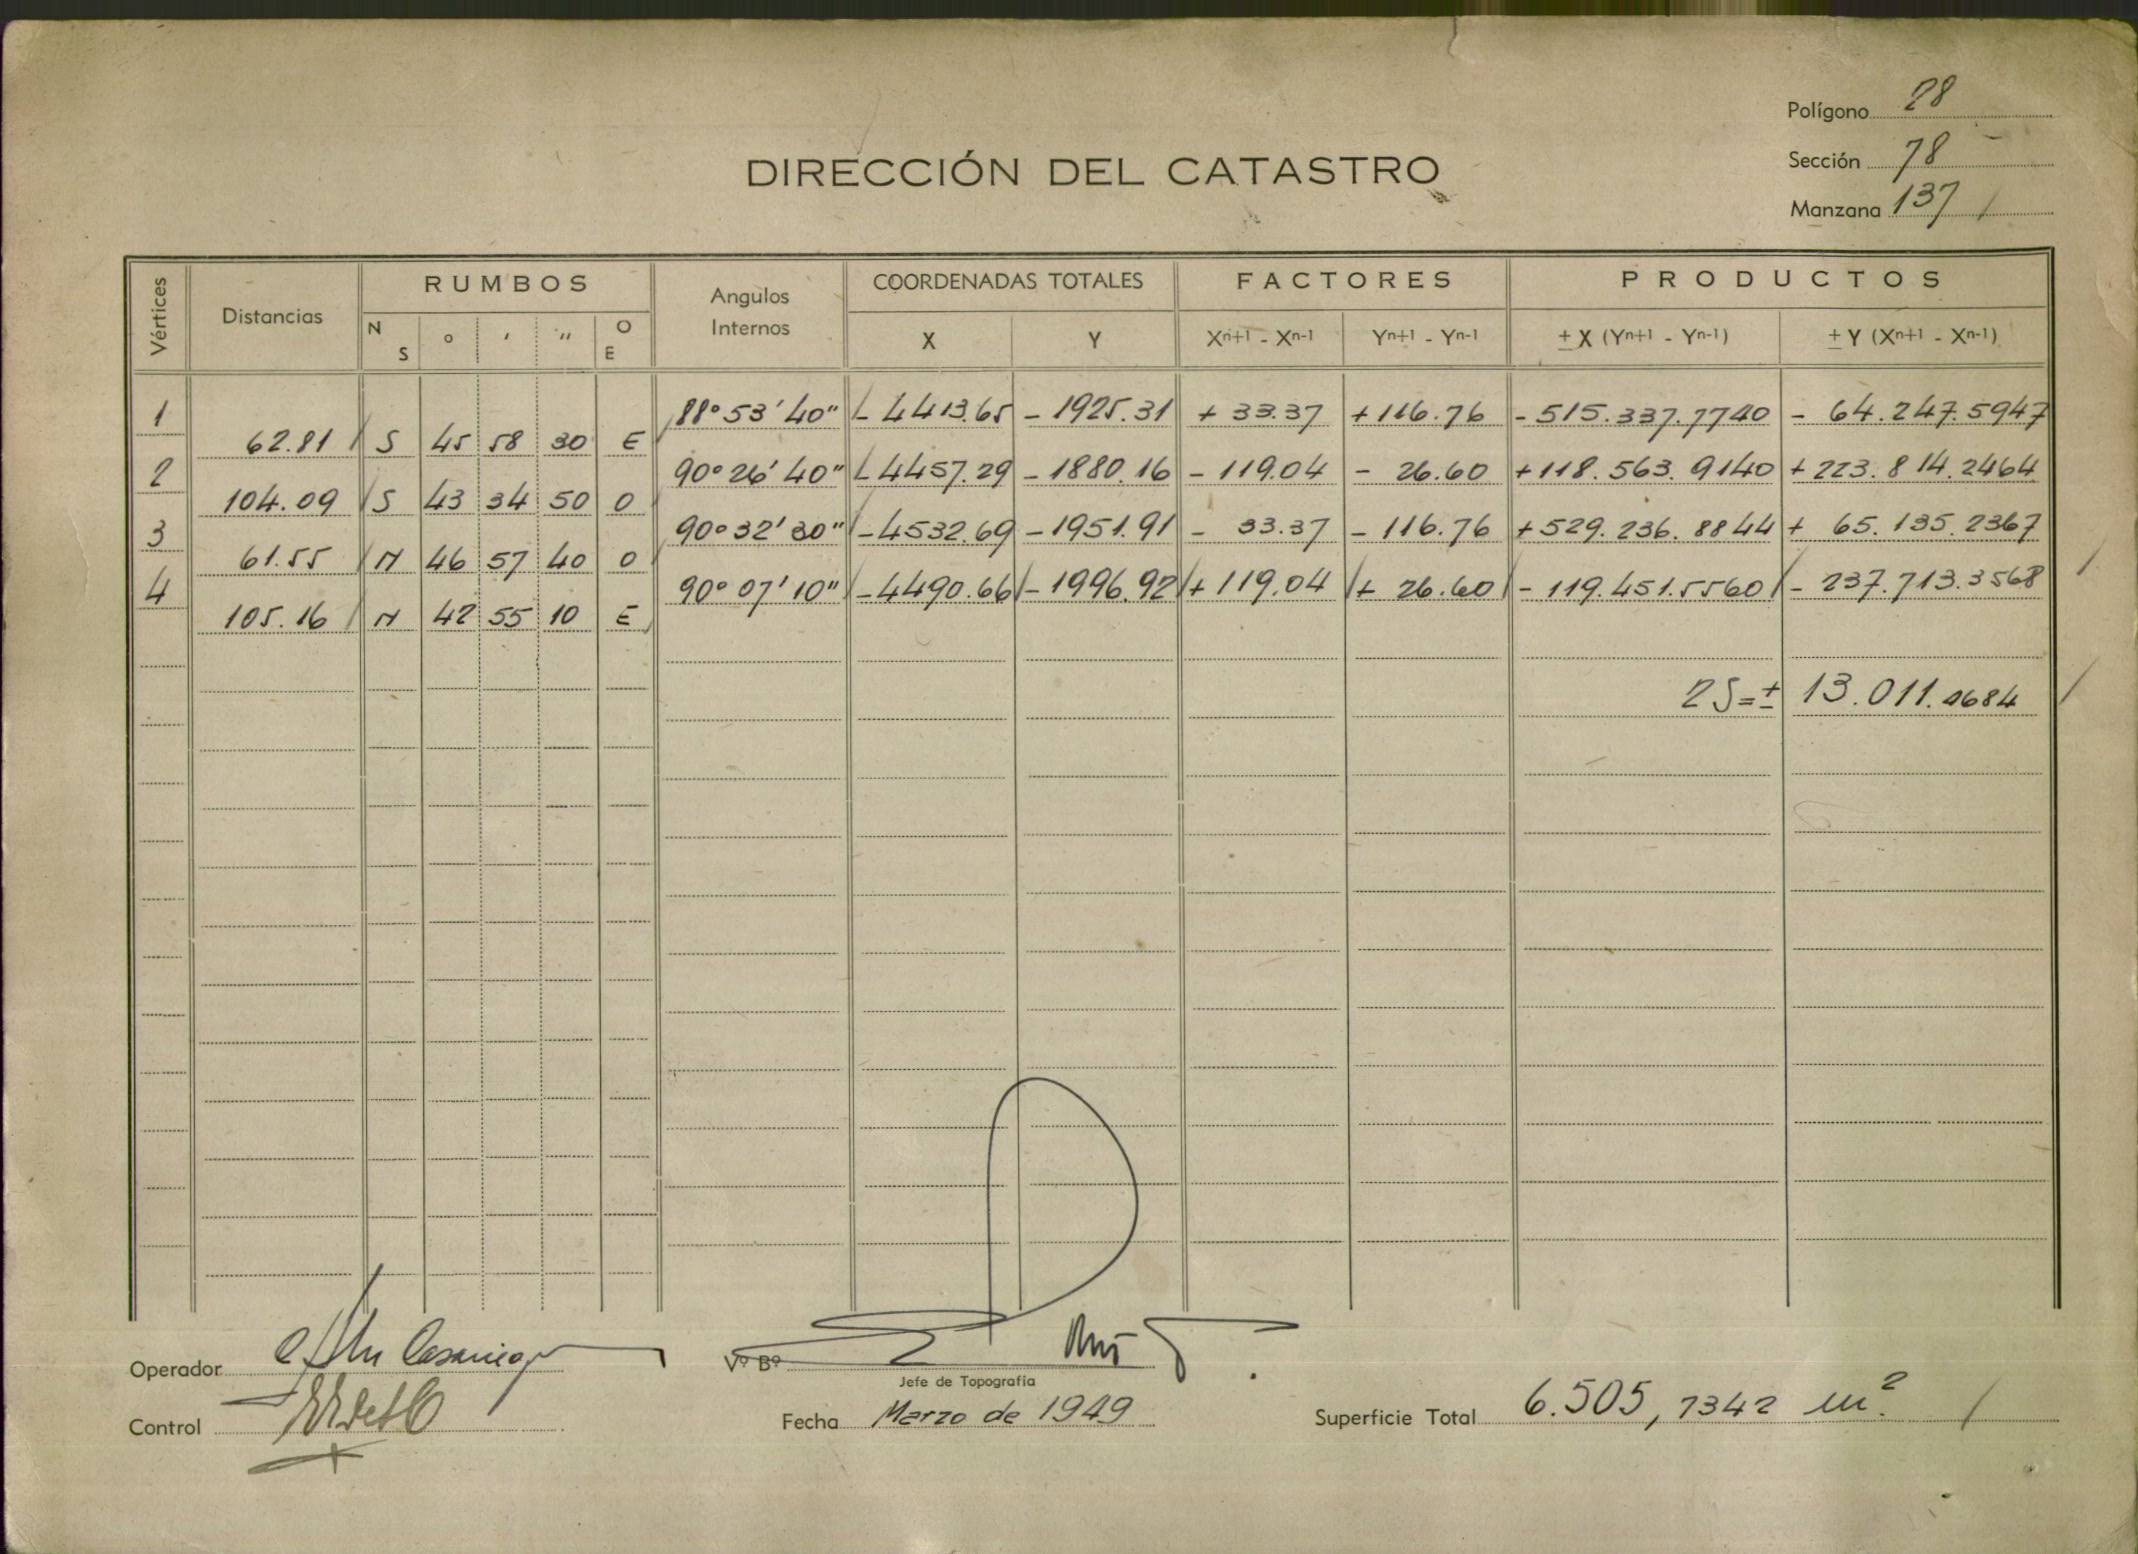 Polígono 28
DIRECCIÓN DEL CATASTRO
Sección 78
Manzana 137
Vértices Distancias RUMBOS Angulos Internos COORDENADAS TOTALES FACTORES PRODUCTOS
N S ° ' " O E X Y Xn+1 - Xn-1 Yn+1 - Yn-1 ± X (Yn+1 - Yn-1) ± Y (Xn+1 - Xn-1)
1 88° 53' 40" - 4413.65 - 1925.31 + 33.37 +116.76 - 515.337.7740 - 64.247.5947
62.81 S 45 58 30 E
2 90° 26' 40" - 4457.29 - 1880.16 - 119.04 - 26.60 +118.563.9140 + 223.814.2464
104.09 S 43 34 50 O
3 90° 32' 30" - 4532.69 - 1951.91 - 33.37 - 116.76 +529.236.8844 + 65.135.2367
61.55 N 46 57 40 O
4 90° 07' 10" - 4490.66 - 1996.92 + 119.04 + 26.60 - 119.451.5560 - 237.713.3568
105.16 N 42 55 10 E
2S=± 13.011.4684
Operador
Vº Bº
Jefe de Topografía
Control
Fecha Marzo de 1949
Superficie Total 6.505,7342 m².